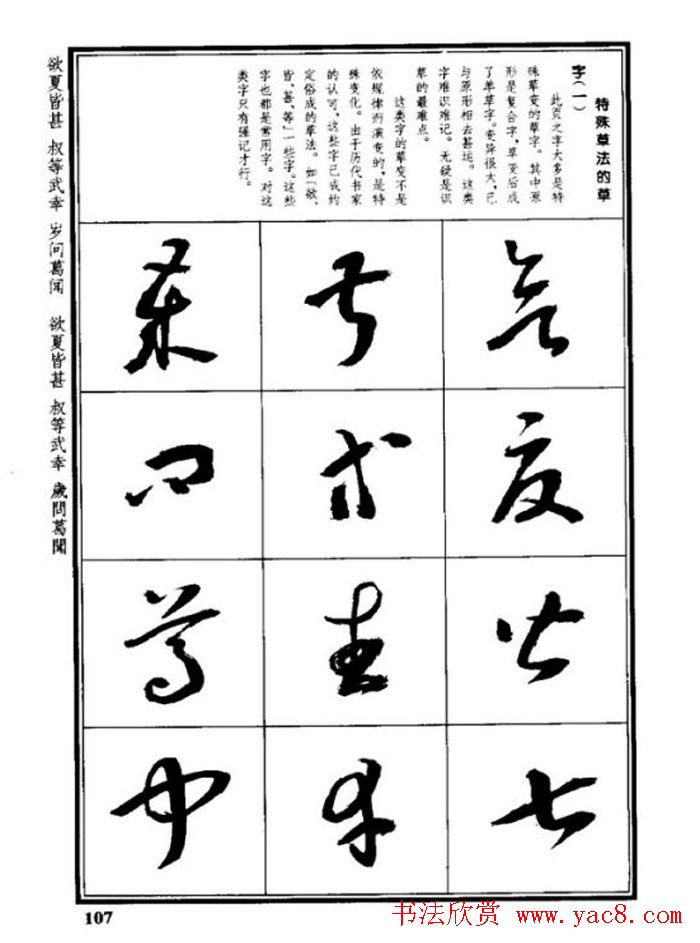 特殊草法的草
字(一)
此页之字大多是特
殊草变的草字。其中原
形是复合字,草变后成
了单草字。变异很大,已
与原形相去甚远。这类
字难识难记。无疑是识
草的最难点。
这类字的草变不是
依规律而演变的,是特
殊变化。由于历代书家
的认可,这些字已成约
定俗成的草法。如「欲、
皆、甚、等」一些字。这些
字也都是常用字。对这
类字只有强记才行。
欲夏皆甚
叔等武幸
歲問葛聞
欲夏皆甚 叔等武幸 岁问葛闻 欲夏皆甚 叔等武幸 歲問葛聞
107
书法欣赏 www.yac8.com